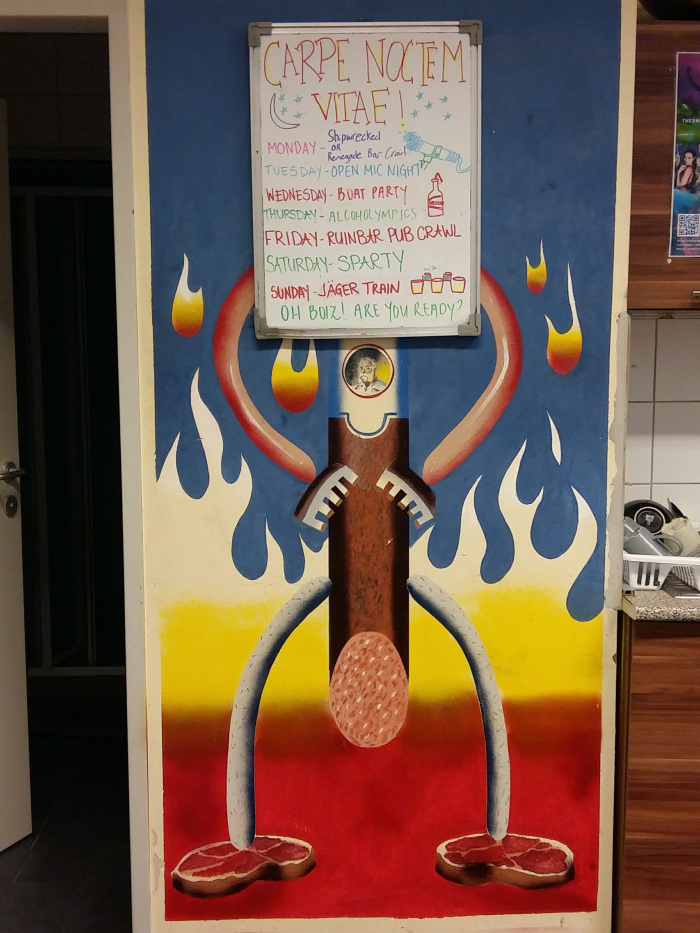 CARPE NOCTEM
VITAE!
MONDAY - Shipwrecked
OR
Renegade Bar Crawl
TUESDAY - OPEN MIC NIGHT
WEDNESDAY - BOAT PARTY
THURSDAY - ALCOHOLYMPICS
FRIDAY - RUINBAR PUB CRAWL
SATURDAY - SPARTY
SUNDAY - JÄGER TRAIN
OH BOIZ! ARE YOU READY?